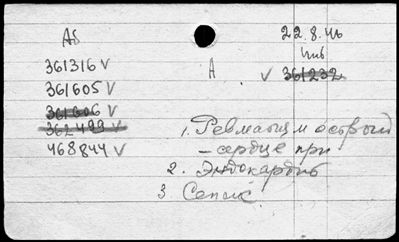 AS
22.8.46
361316 V
A
V 361232
361605 V
361606 V
362499 V
468844 V
1. Ревматизм острый
– сердце при
2. Эндокардит
3. Сепсис